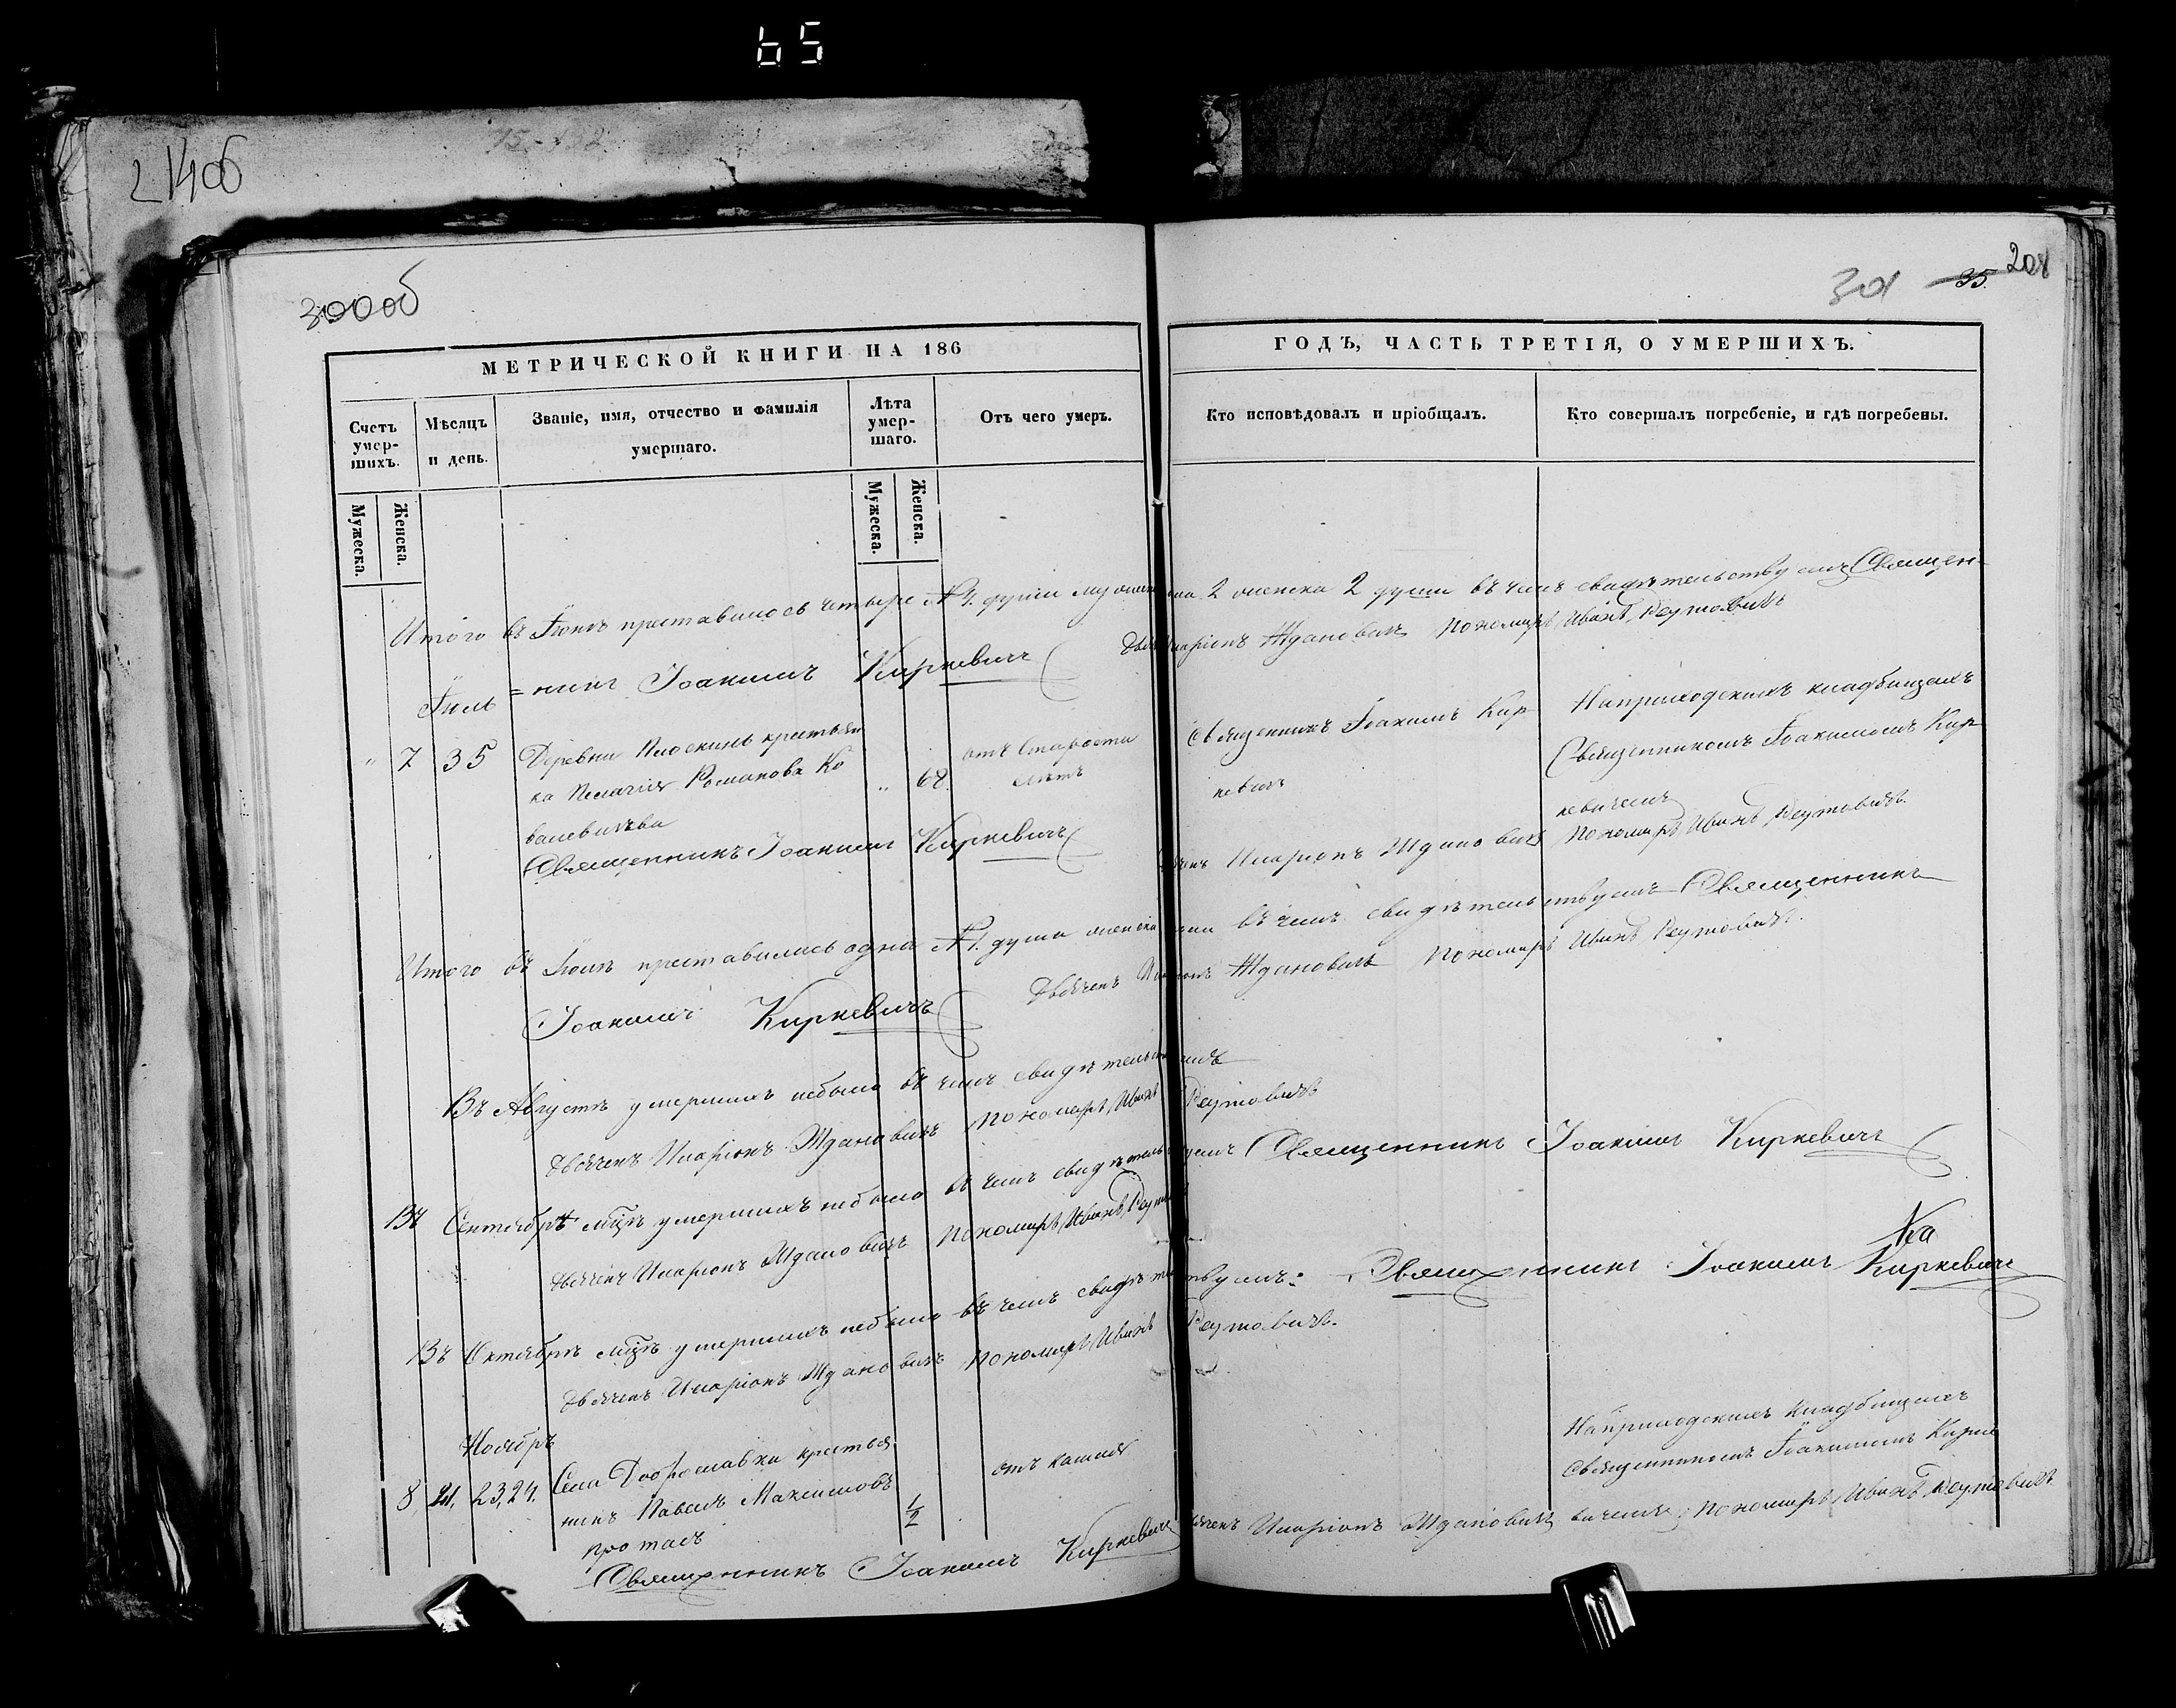 65
15-132
214об
300об
301 35. 208
МЕТРИЧЕСКОЙ КНИГИ НА 186
ГОДЪ, ЧАСТЬ ТРЕТІЯ, О УМЕРШИХЪ.
Счетъ умер-
шихъ.
Мѣсяцъ
и день.
Званіе, имя, отчество и фамилія
умершаго.
Лѣта
умер-
шаго.
Отъ чего умеръ.
Кто исповѣдовалъ и пріобщалъ.
Кто совершалъ погребеніе, и гдѣ погребены.
Мужеска.
Женска.
Мужеска.
Женска.
Итого въ Іюнѣ преставилось четыре № 4. души мужеска 2 женска 2 души въ чемъ свидѣтельствуемъ Священ-
=никъ Іоакимъ Киркевичъ
Дьячекъ Иларіонъ Ждановичъ Пономарь Иванъ Реутовичъ
Іюль
" 7 3 5 Деревни Плоскинь крестьян
ка Пелагія Романова Ко
валевичева
" 68.
отъ старости
лѣтъ
Священникъ Іоакимъ Кир
кевичъ
На приходскихъ кладбищахъ
Священникомъ Іоакимомъ Кир
кевичемъ
Священникъ Іоакимъ Киркевичъ
Дьячекъ Иларіонъ Ждановичъ Пономарь Иванъ Реутовичъ.
Итого въ Іюлѣ преставилась одна № 1. душа женска въ чемъ свидѣтельствуемъ Священникъ
Іоакимъ Киркевичъ
Дьячекъ Иларіонъ Ждановичъ Пономарь Иванъ Реутовичъ.
Въ Августѣ умершихъ небыло въ чемъ свидѣтельствуемъ
Дьячекъ Иларіонъ Ждановичъ Пономарь Иванъ Реутовичъ
Священникъ Іоакимъ Киркевичъ
Въ Сентябрѣ мцѣ умершихъ небыло въ чемъ свидѣтельствуемъ
Дьячекъ Иларіонъ Ждановичъ Пономарь Иванъ Реутовичъ
Въ Октябрѣ мцѣ умершихъ небыло въ чемъ свидѣтельствуемъ: Священникъ Іоакимъ Киркевичъ
Дьячекъ Иларіонъ Ждановичъ Пономарь Иванъ Реутовичъ.
Ноябрь
8, 21, 23,24. Села Доброславки крестья
нинъ Павелъ Максимовъ
Протасъ
1/2
отъ кашля
На приходскихъ кладбищахъ
Священникомъ Іоакимомъ Кирке
вичемъ
Священникъ Іоакимъ Киркевичъ
Дьячекъ Иларіонъ Ждановичъ Пономарь Иванъ Реутовичъ